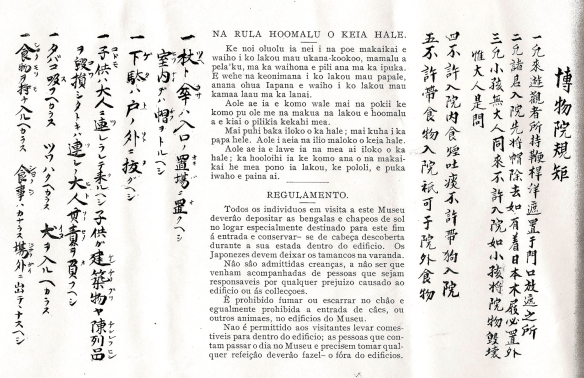 博物院規矩
一凡來遊觀者所持鞭桿洋遮置于門口放遮之所
二凡諸君入院先將帽除去如有着日本木屐必置外
三凡小孩無大人同來不許入院如小孩將院物毀壞
惟大人是問
四不許入院內食煙吐痰不許帶狗入院
五不許帶食物入院祇可于院外食物
NA RULA HOOMALU O KEIA HALE.
Ke noi oluolu ia nei i na poe makaikai e
waiho i ko lakou mau ukana-kookoo, mamalu a
pela'ku, ma ka waihona e pili ana ma ka ipuka.
E wehe na keonimana i ko lakou mau papale,
anana ohua Iapana e waiho i ko lakou mau
kamaa laau ma ka lanai.
Aole ae ia e komo wale mai na pokii ke
komo pu ole me na makua na lakou e hoomalu
a e kiai o pilikia kekahi mea.
Mai puhi baka iloko o ka hale; mai kuha i ka
papa hele. Aole i aeia na ilio maloko o keia hale.
Aole ae ia e lawe ia na mea ai iloko o ka
hale; ka hooloihi ia ke komo ana o na makai-
kai he mea pono, ke pololi, e puka
iwaho e paina ai.
REGULAMENTO.
Todos os individuos em visita a este Museu
deverão depositar as bengalas e chapeos de sol
no logar especialmente destinado para este fim
á entrada e conservar- se de cabeça descoberta
durante a sua estada dentro do edificio. Os
Japonezes devem deixar os tamancos na varanda.
Não são admittidas creanças, a não ser que
venham acompanhadas de pessoas que sejam
responsaveis por qualquer prejuizo causado ao
edificio ou ás collecçoes.
É prohibido fumar ou escarrar no chão e
egualmente prohibida a entrada de cães, ou
outros animaes, no edificios do Museu.
Nao é permittido aos visitantes levar comes-
tiveis para dentro do edificio; as pessoas que con-
tam passar o dia no Museu e precisem tomar qual-
quer refeição deverão fazel- o fóra do edificios.
一杖ト傘ハ入口ノ置場ニ置クヘシ
室内ハ帽ヲトルヘシ
一下駄ハ戸ノ外ニ拔クヘシ
一子供ハ大人ニ連レラレテ來ルヘシ子供カ建築物ヤ陳列品
ヲ毀損シタトキハ連レシ大人カ責ヲ負フヘシ
一タバコ吸フヘカラス ツバハクヘカラス 犬ヲ入ルヘカラス
一食物ヲ持チ入ルヘカラス 食事ハカナラス場外ニ出テナスヘシ